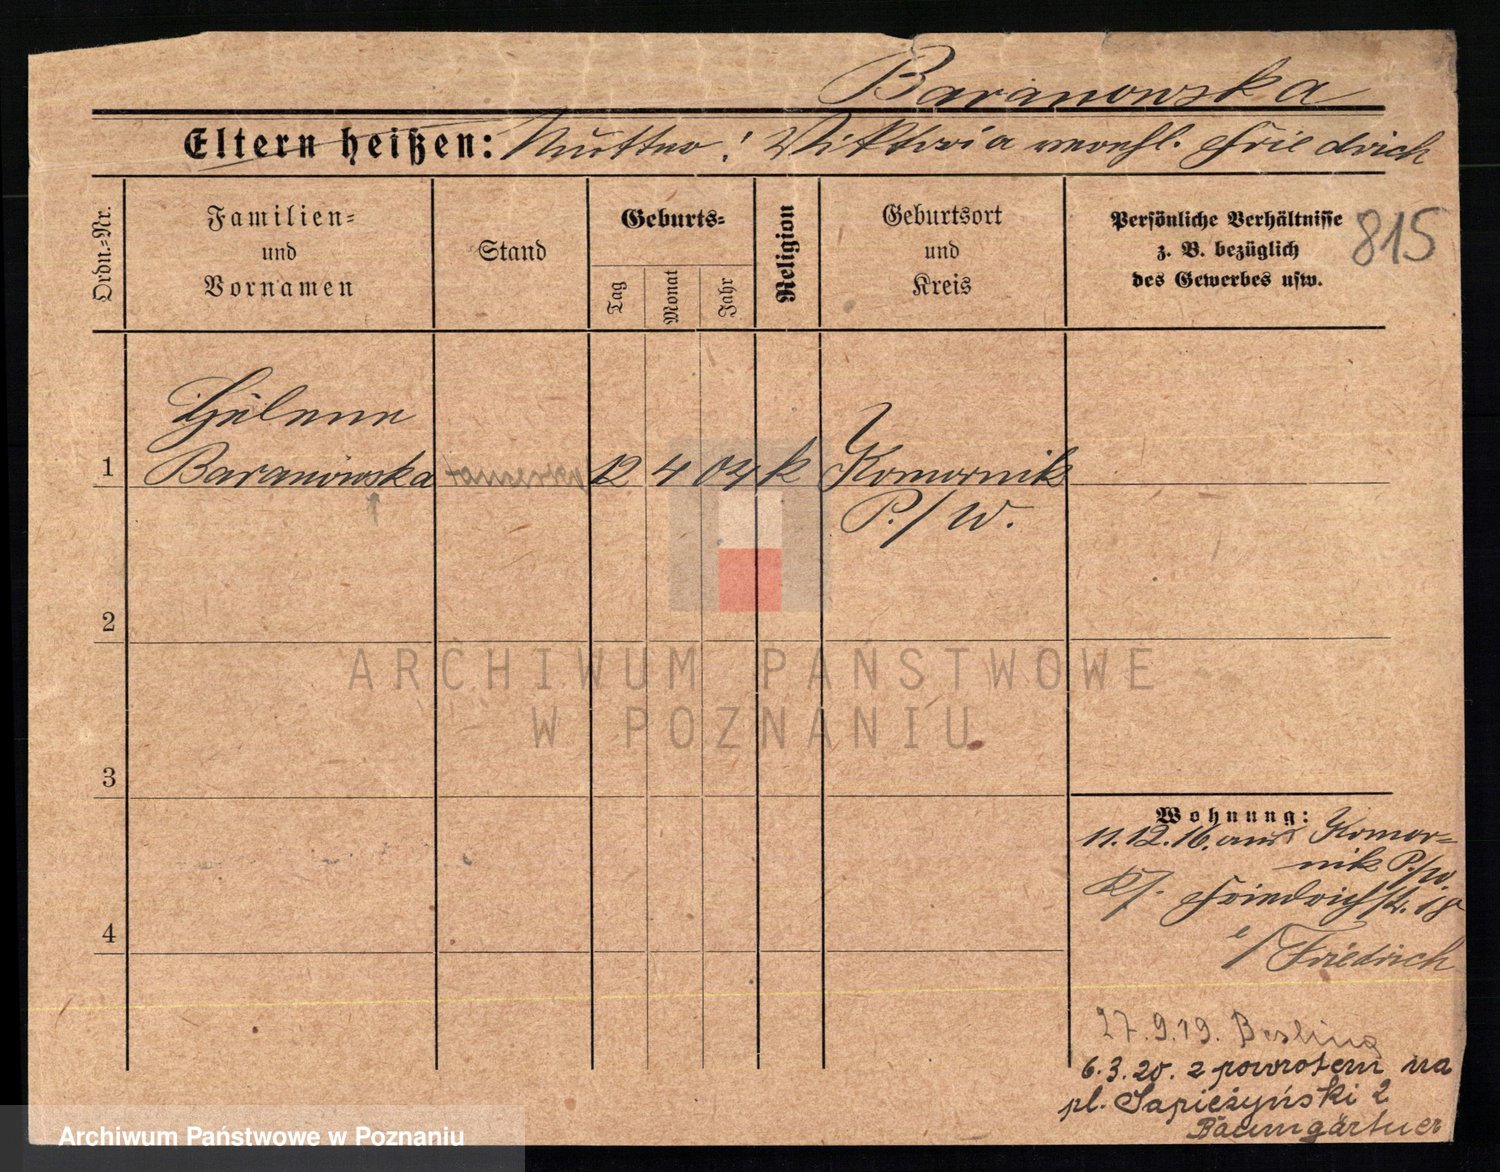 Baranowska
Eltern heißen: Mutter: Viktoria verehl. Friedrich
Ordn.=Nr.
Familien=
und
Vornamen
Stand
Geburts=
Tag
Monat
Jahr
Religion
Geburtsort
und
Kreis
Persönliche Verhältnisse
z. B. bezüglich
des Gewerbes usw.
815
Helene
1 Baranowska 12 4 04 k Komornik
P./W.
2
3
4
Wohnung:
11.12.16. aus Komor=
nik P./W.
Friedrichstr. 18
b/ Friedrich
27.9.19.
6.3.20. z powrotem na
pl. Sapieżyński 2
Baumgärtner
ARCHIWUM PAŃSTWOWE
W POZNANIU
Archiwum Państwowe w Poznaniu